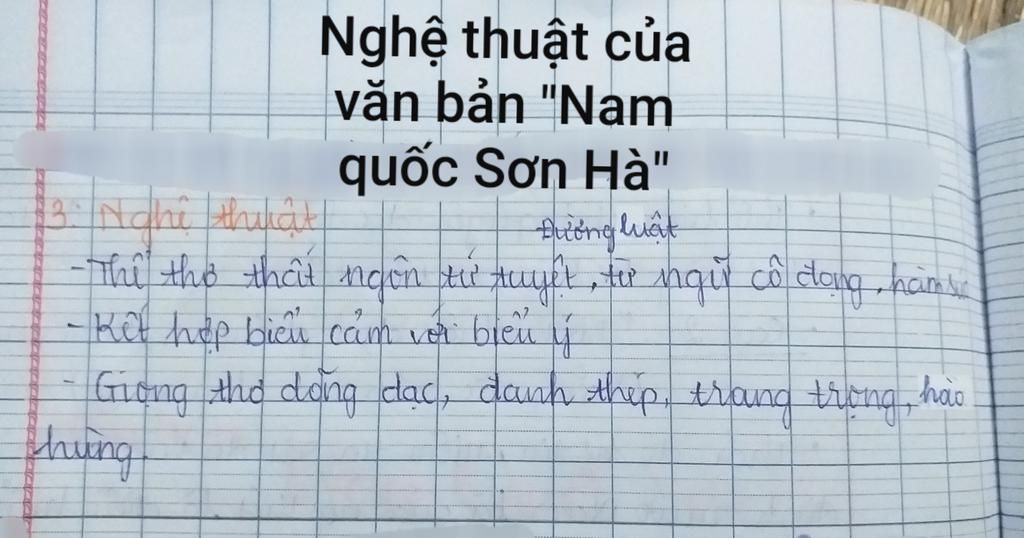 Nghệ thuật của
văn bản "Nam
quốc Sơn Hà"
3. Nghệ thuật
Đường luật
- Thể thơ thất ngôn tứ tuyệt, từ ngữ cô đọng, hàm súc
- Kết hợp biểu cảm với biểu ý
- Giọng thơ dõng dạc, danh thép, trang trọng, hào
hùng.